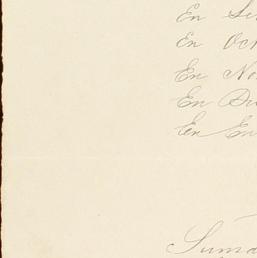 En Se
En Oc
En No
En Di
En En
Suma